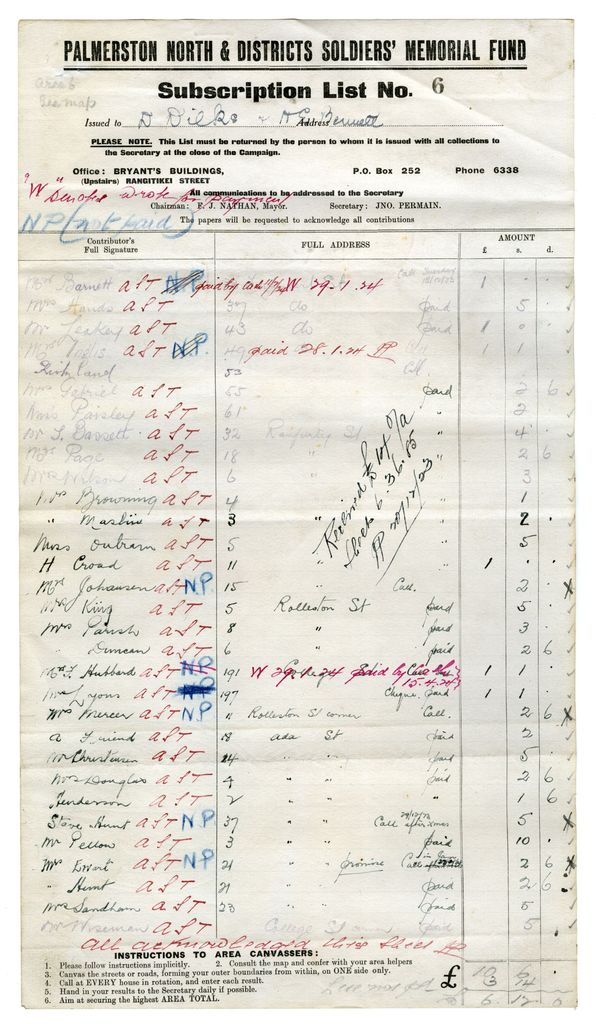 PALMERSTON NORTH & DISTRICTS SOLDIERS' MEMORIAL FUND
Subscription List No. 6
Area 6
See map
Issued to D Dilks & H G Bennett Address
PLEASE NOTE. This List must be returned by the person to whom it is issued with all collections
to the Secretary at the close of the Campaign.
Office: BRYANT'S BUILDINGS, P.O. Box 252 Phone 6338
(Upstairs) RANGITIKEI STREET
"W" Denotes wrote for payment
All communications to be addressed to the Secretary
Chairman: F. J. NATHAN, Mayor. Secretary: JNO. PERMAIN.
NP (not paid)
The papers will be requested to acknowledge all contributions
Contributor's Full Signature FULL ADDRESS AMOUNT
£ s. d.
Barnett a S T NP paid by W 29.1.24 Call 1
Mrs Hands a S T 37 do paid 5
Mr Leakey a S T 43 do paid 1 0
a S T N.P. 49 paid 28.1.24 JP 1 1
Kirkland 53 Call
Mrs Gabriel a S T 55 paid 2 6
Paisley a S T 61 " 2
Bassett a S T 32 St " 4
Page a S T 18 " 2 6
Mrs Wilson a S T 6 " 3
Mrs Browning a S T 4 " " 1
" Maslin a S T 3 " " 2
Miss Outram a S T 5 " " 5
H Croad a S T 11 " " 1
Received
6.36.85
JP 20/12/23
Mrs Johansen a S T N.P. 15 " Call. 2 x
Mrs King a S T 5 Rolleston St paid 5
Mrs Parish a S T 8 " paid 3
" Duncan a S T 6 " paid 2 6
Hubbard a S T N.P 191 W 29.1.24 paid by 15.4.24 1 1
Lyons a S T NP 197 " Cheque paid 1 1
Mrs Mercer a S T N.P 11 Rolleston St corner Call. 2 6 x
A Friend a S T 18 Ada St paid 2
Mr Christensen a S T 24 " " " 5
Mrs Douglas a S T 4 " " paid 2 6
Henderson a S T 2 " " " 1 6
Steve Hunt a S T N.P 37 " " Call after Xmas 5 x
Mr Pellow a S T 3 " " paid 10
Mrs Ewart a S T N.P 21 " " promise Call 2 6 x
" Hunt a S T 21 " " paid 2 6
Mrs Sandham a S T 23 " " paid 5
Wiseman a S T College St paid 5
All acknowledged this sheet JP
INSTRUCTIONS TO AREA CANVASSERS:
1. Please follow instructions implicitly. 2. Consult the map and confer with your area helpers
3. Canvas the streets or roads, forming your outer boundaries from within, on ONE side only.
4. Call at EVERY house in rotation, and enter each result.
5. Hand in your results to the Secretary daily if possible.
6. Aim at securing the highest AREA TOTAL.
£ 10 6
3 14
6 12 0